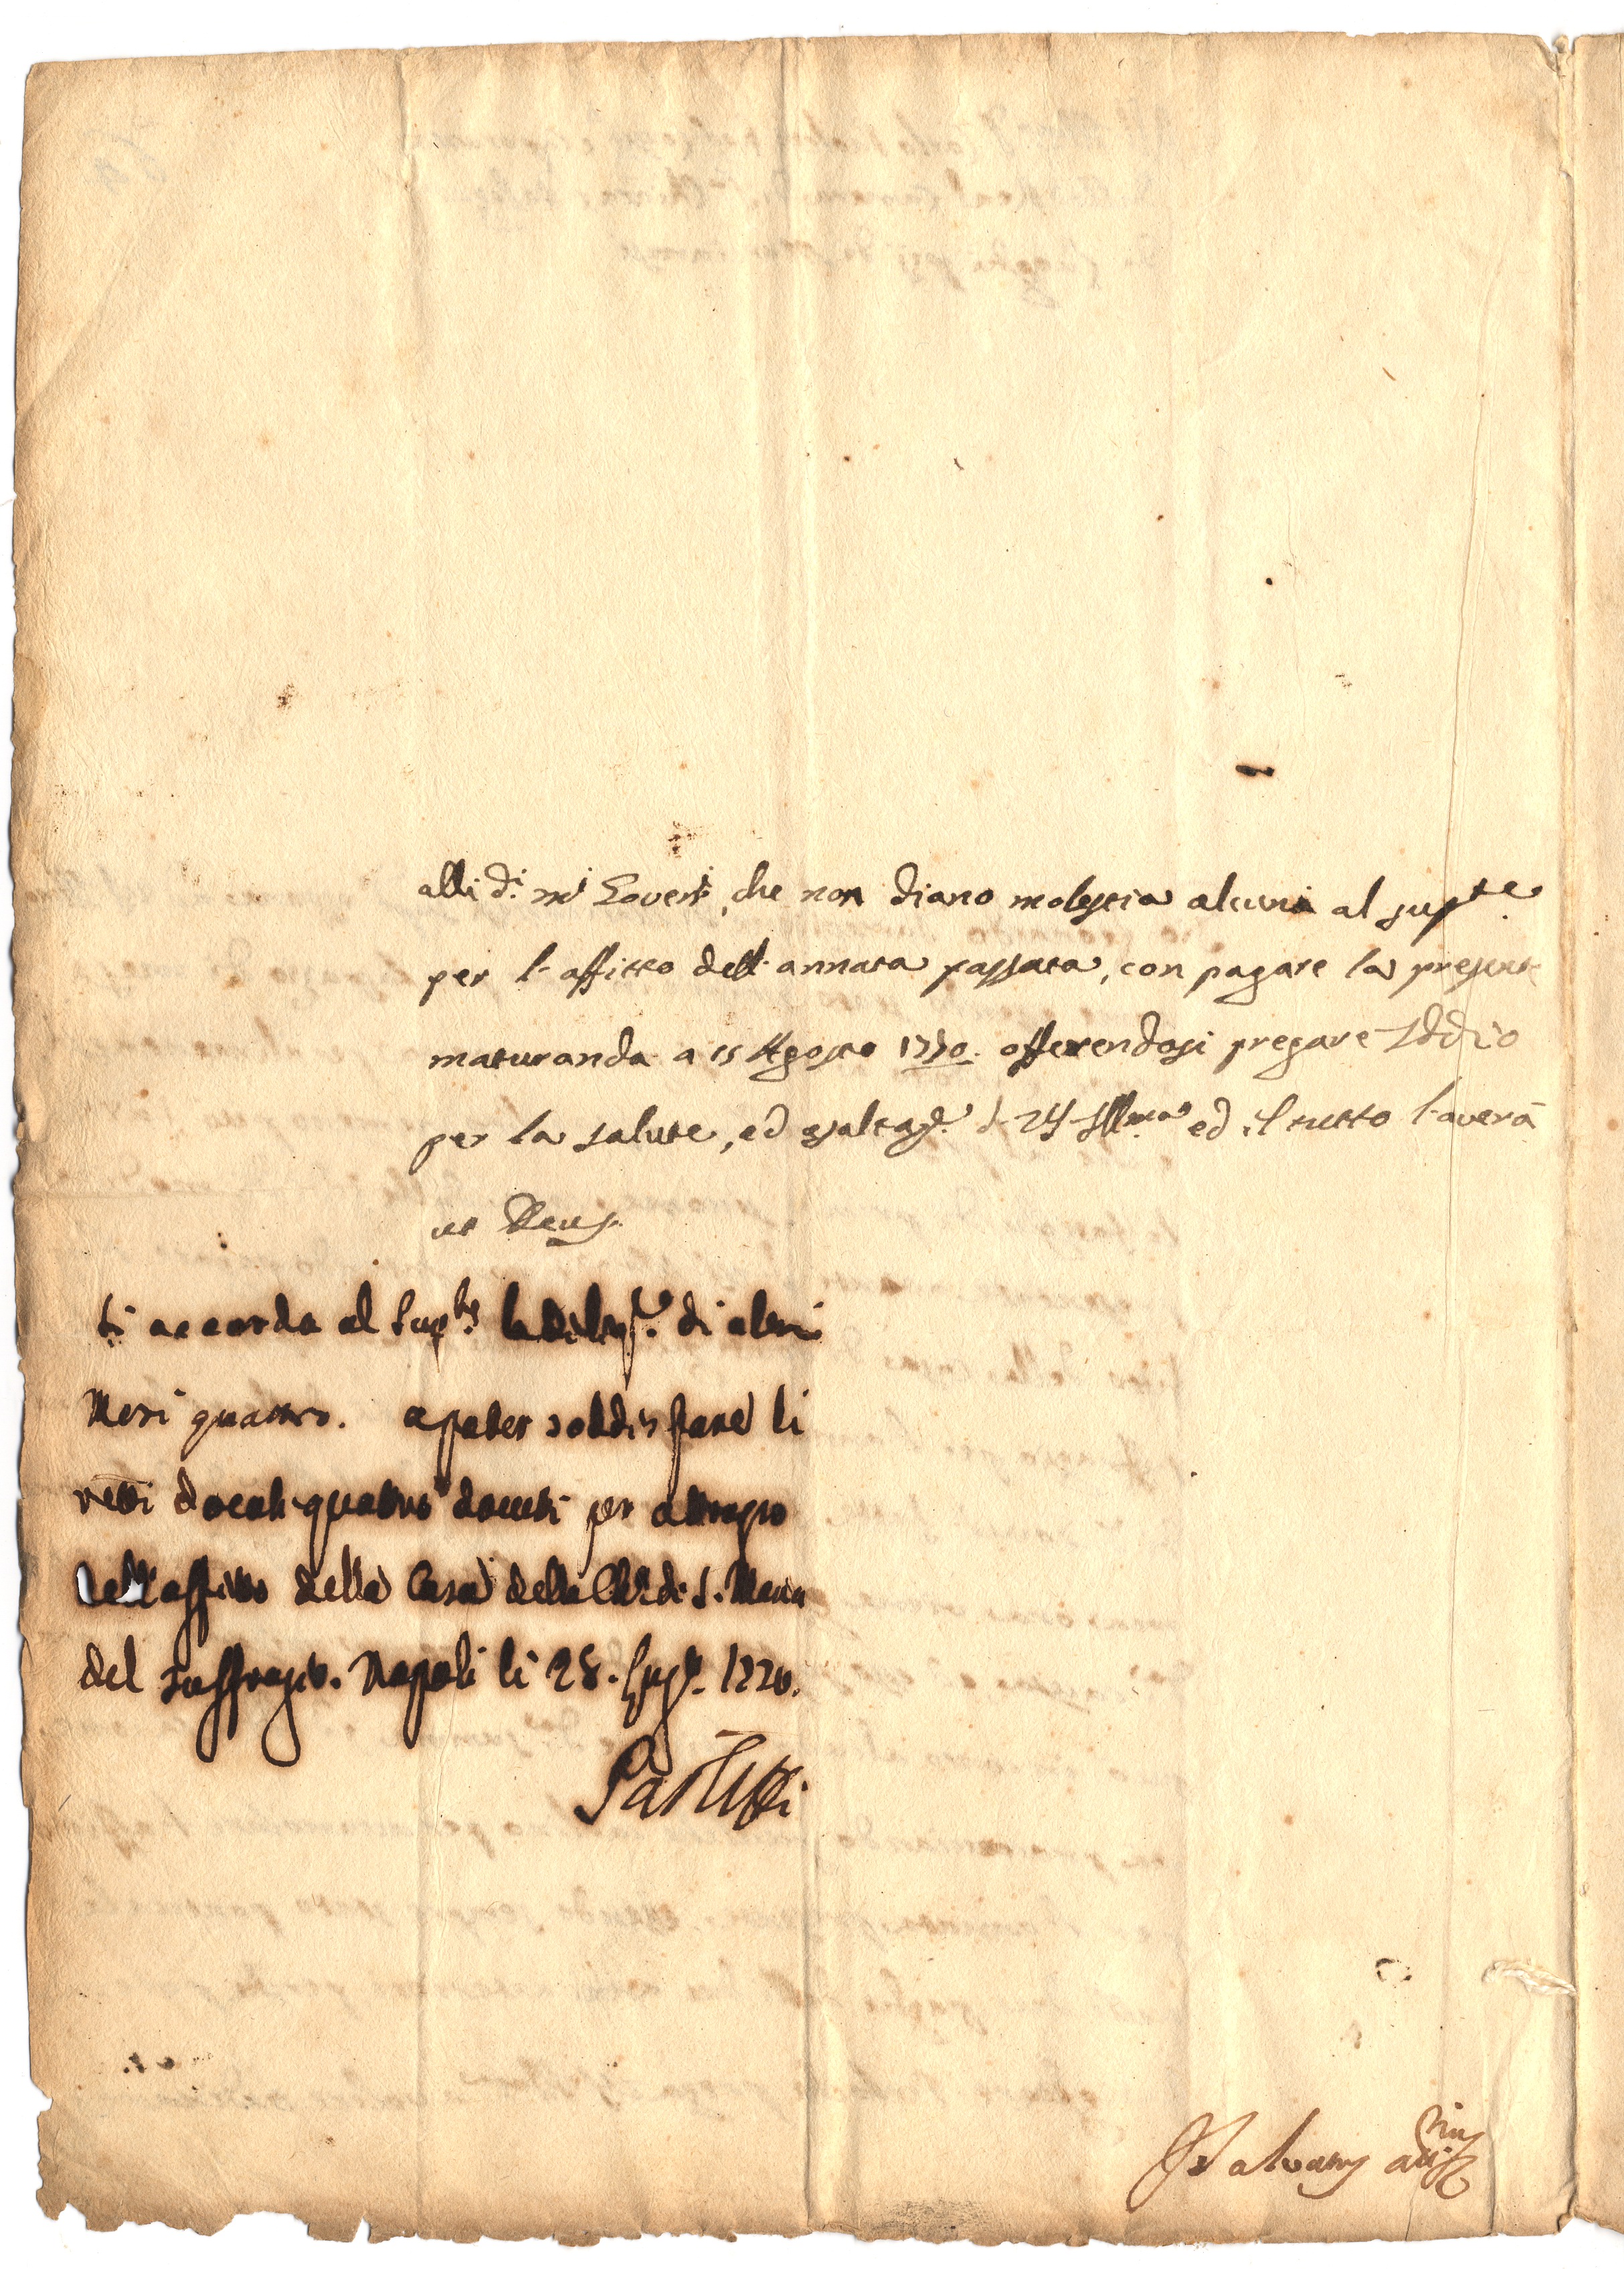 alli d.i m.i Govern.i, che non diano molestia alcuna al supp.te
per l'affitto dell'annata passata, con pagare la presente
maturanda a 15 Agosto 1770. offerendosi pregare Iddio
per la salute, ed esaltaz.e di V.S. Ill.ma ed il tutto l'averà
ut Deus.
Si accorda al Supp.te la dilaz.e di altri
Mesi quattro. a poter soddisfare li
docati quattro dovuti per attrasso
dell'affitto della Casa della Ch.a di S. Maria
del suffragio. Napoli li 28. Lug.o 1770.